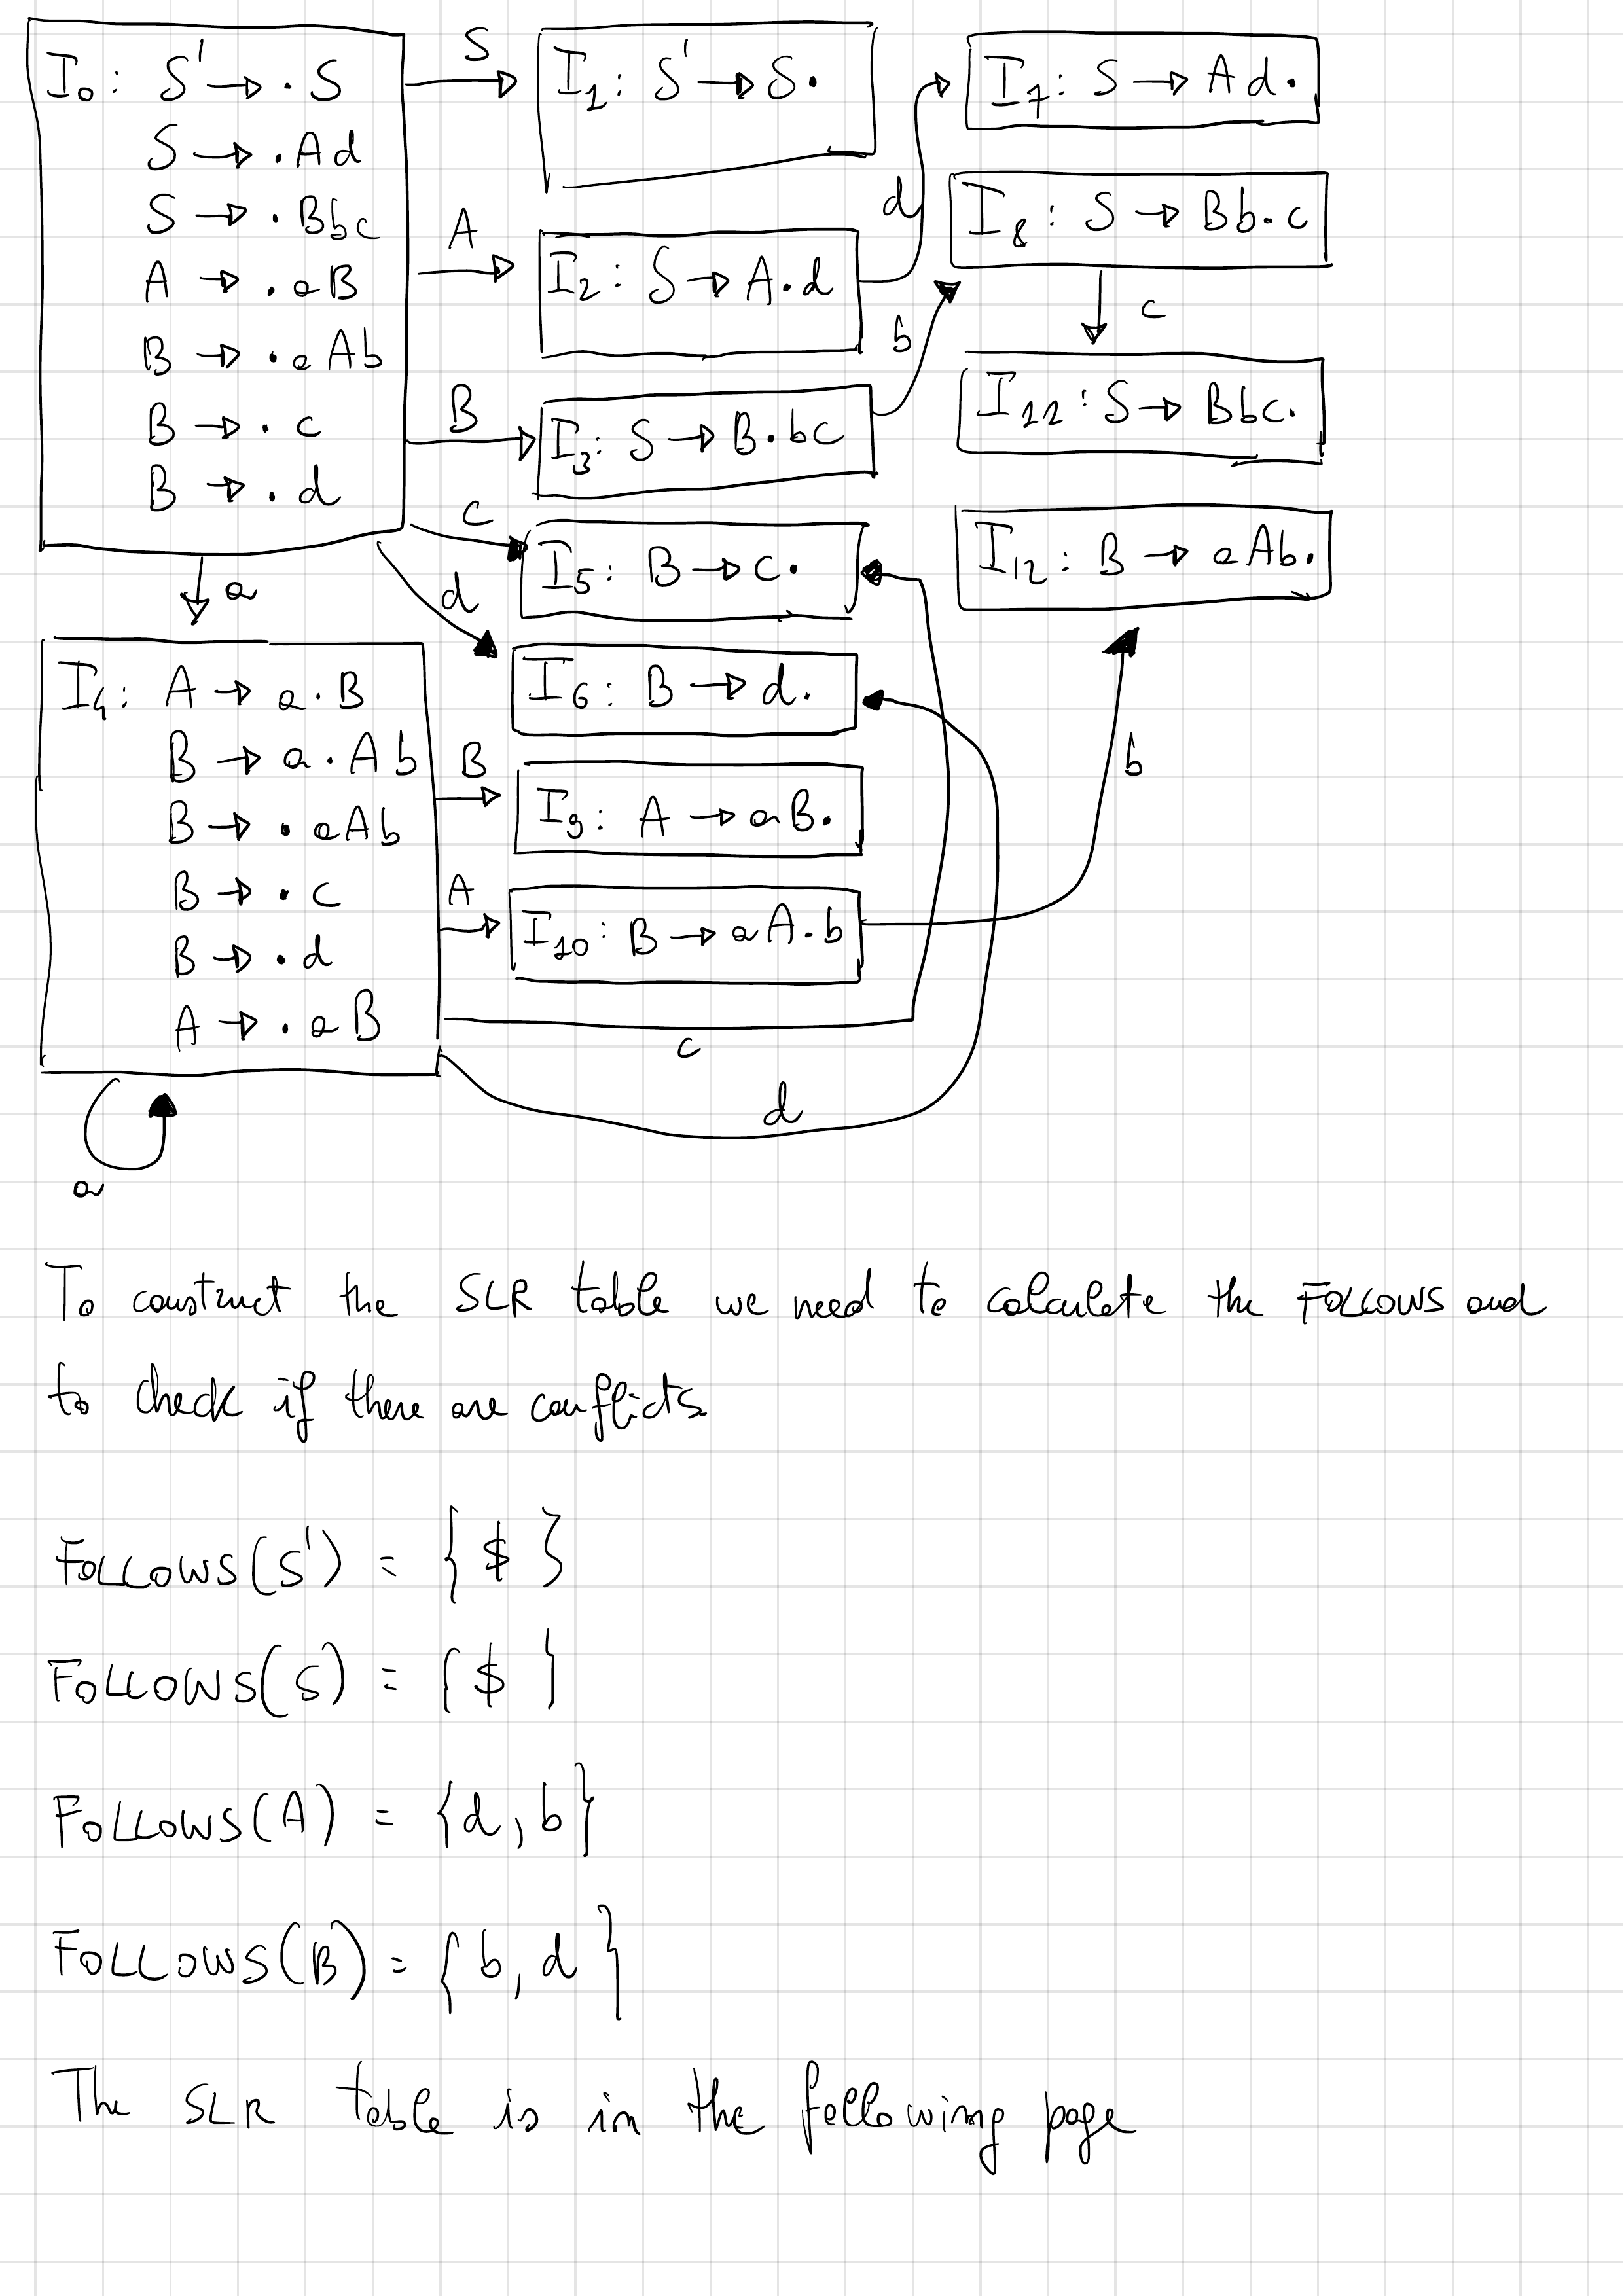 I₀: S' → . S
S → . Ad
S → . Bbc
A → . aB
B → . aAb
B → . c
B → . d
S
A
B
c
d
a
I₁: S' → S.
I₂: S → A.d
I₃: S → B.bc
I₅: B → c.
I₆: B → d.
I₉: A → aB.
I₁₀: B → aA.b
d
b
I₇: S → Ad.
I₈: S → Bb.c
c
I₁₁: S → Bbc.
I₁₂: B → aAb.
b
I₄: A → a.B
B → a.Ab
B → . aAb
B → . c
B → . d
A → . aB
B
A
c
d
a
To construct the SLR table we need to calculate the FOLLOWS and
to check if there are conflicts
FOLLOWS(S') = { $ }
FOLLOWS(S) = { $ }
FOLLOWS(A) = {d, b}
FOLLOWS(B) = { b, d }
The SLR table is in the following page